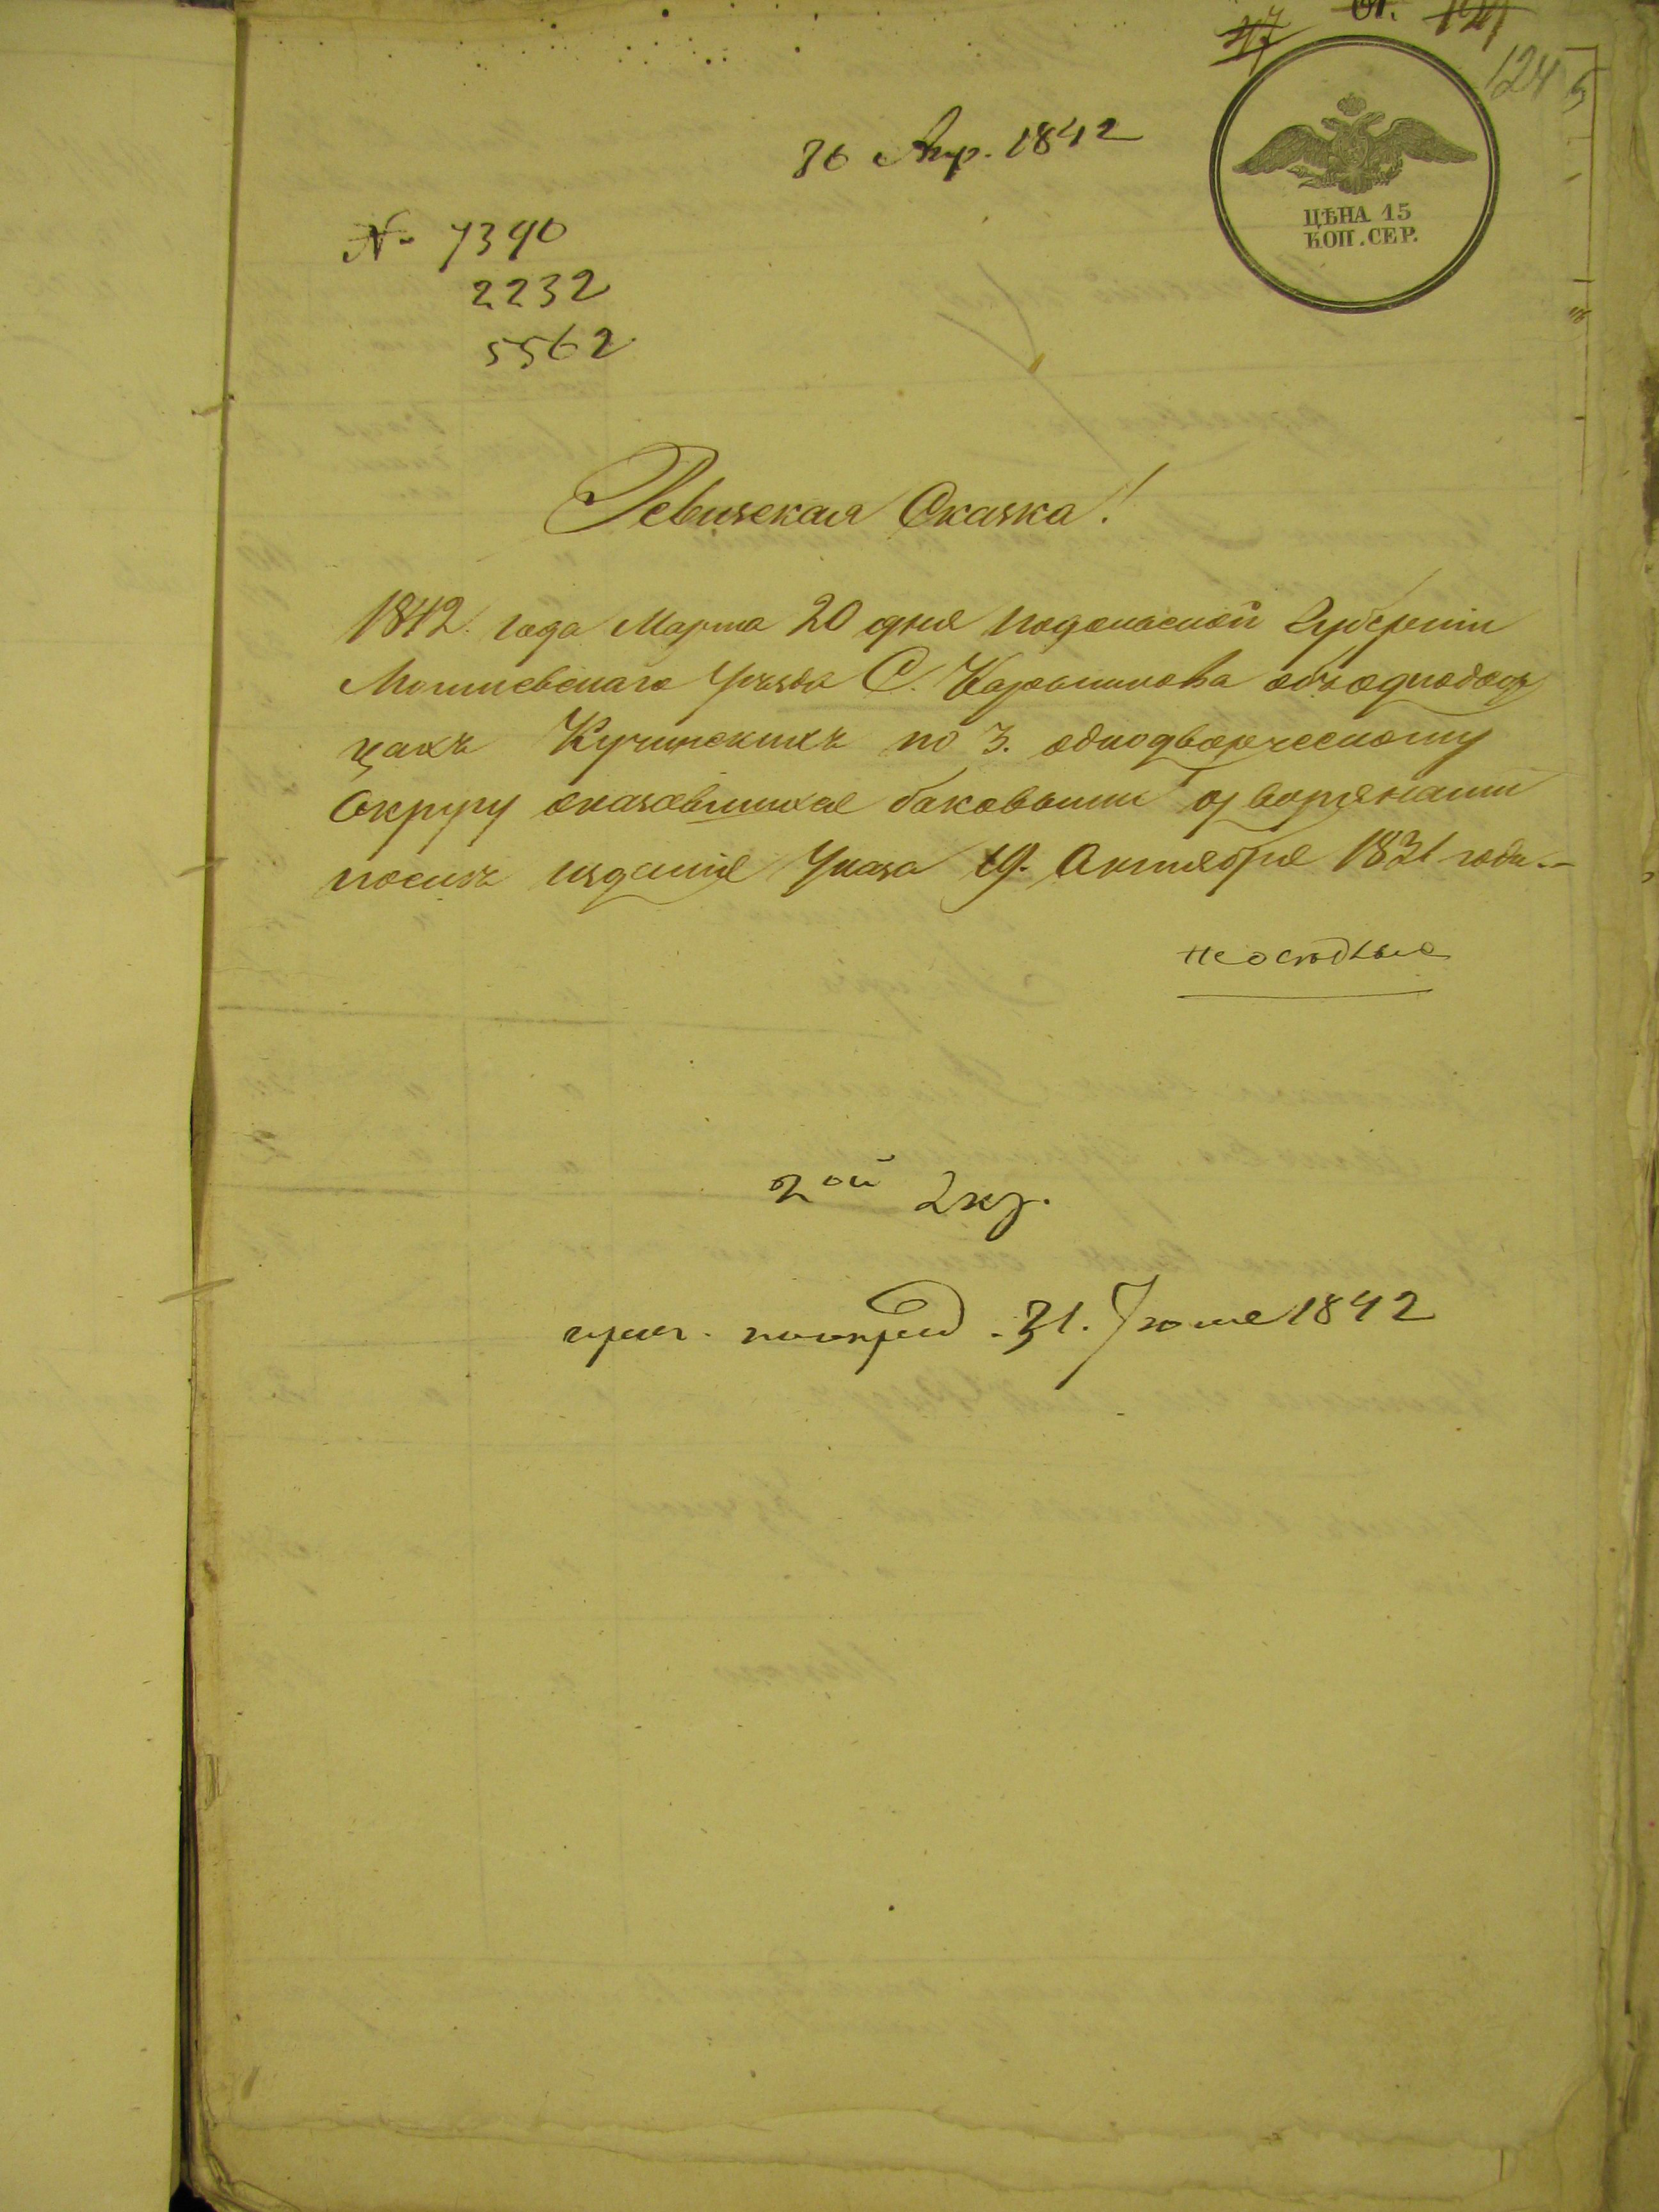 47 61. 121
124
26 Апр. 1842
ЦѢНА 15
КОП. СЕР.
№ 7390
2232
5562
Ревизская Сказка!
1842. года Марта 20 дня Подольской Губерніи
Могилевскаго Уѣзда С. Карышкова объ однодвор
цахъ Кучинскихъ по 3. однодворческому
Округу оказавшихся баковыми дворянами
послѣ изданія Указа 19. Октября 1831 года.
неосѣдлые
2ой Экз.
31. Іюля 1842